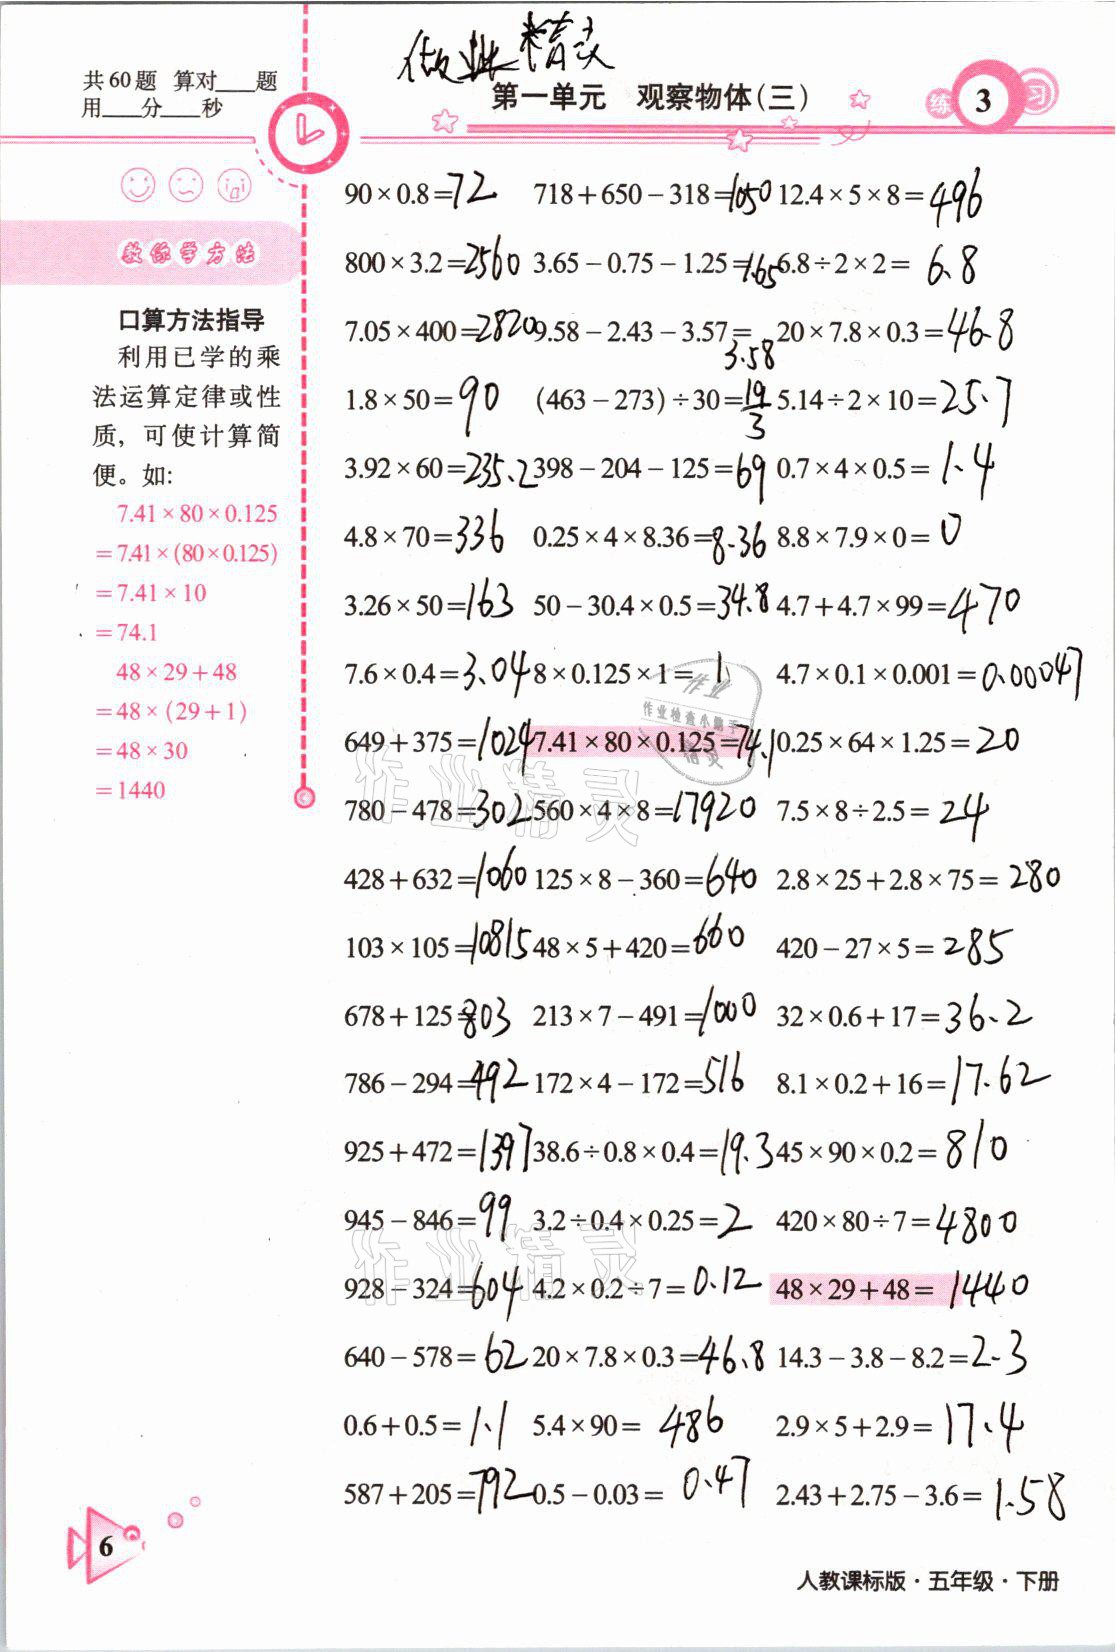 做业精灵
共60题 算对___题
用___分___秒
第一单元 观察物体(三)
练 3 习
教你学方法
口算方法指导
利用已学的乘
法运算定律或性
质，可使计算简
便。如:
7.41×80×0.125
=7.41×(80×0.125)
=7.41×10
=74.1
48×29+48
=48×(29+1)
=48×30
=1440
90×0.8=72 718+650-318=1050 12.4×5×8=496
800×3.2=2560 3.65-0.75-1.25=1.65 6.8÷2×2=6.8
7.05×400=2820 9.58-2.43-3.57=3.58 20×7.8×0.3=46.8
1.8×50=90 (463-273)÷30=19/3 5.14÷2×10=25.7
3.92×60=235.2 398-204-125=69 0.7×4×0.5=1.4
4.8×70=336 0.25×4×8.36=8.36 8.8×7.9×0=0
3.26×50=163 50-30.4×0.5=34.8 4.7+4.7×99=470
7.6×0.4=3.04 8×0.125×1=1 4.7×0.1×0.001=0.00047
649+375=1024 7.41×80×0.125=74.1 0.25×64×1.25=20
780-478=302 560×4×8=17920 7.5×8÷2.5=24
428+632=1060 125×8-360=640 2.8×25+2.8×75=280
103×105=10815 48×5+420=660 420-27×5=285
678+125=803 213×7-491=1000 32×0.6+17=36.2
786-294=492 172×4-172=516 8.1×0.2+16=17.62
925+472=1397 38.6÷0.8×0.4=19.3 45×90×0.2=810
945-846=99 3.2÷0.4×0.25=2 420×80÷7=4800
928-324=604 4.2×0.2÷7=0.12 48×29+48=1440
640-578=62 20×7.8×0.3=46.8 14.3-3.8-8.2=2.3
0.6+0.5=1.1 5.4×90=486 2.9×5+2.9=17.4
587+205=792 0.5-0.03=0.47 2.43+2.75-3.6=1.58
作业
作业检查小助手
精灵
作业精灵
作业精灵
6
人教课标版·五年级·下册